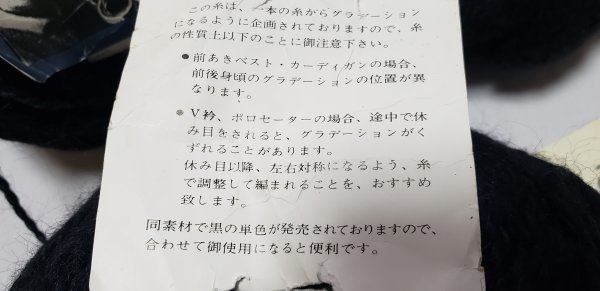 この糸は、一本の糸からグラデーション
になるように企画されておりますので、糸
の性質上以下のことに御注意下さい。
●前あきベスト・カーディガンの場合、
前後身頃のグラデーションの位置が異
なります。
●V衿、ポロセーターの場合、途中で休
み目をされると、グラデーションがく
ずれることがあります。
休み目以降、左右対称になるよう、糸
で調整して編まれることを、おすすめ
致します。
同素材で黒の単色が発売されておりますので、
合わせて御使用になると便利です。